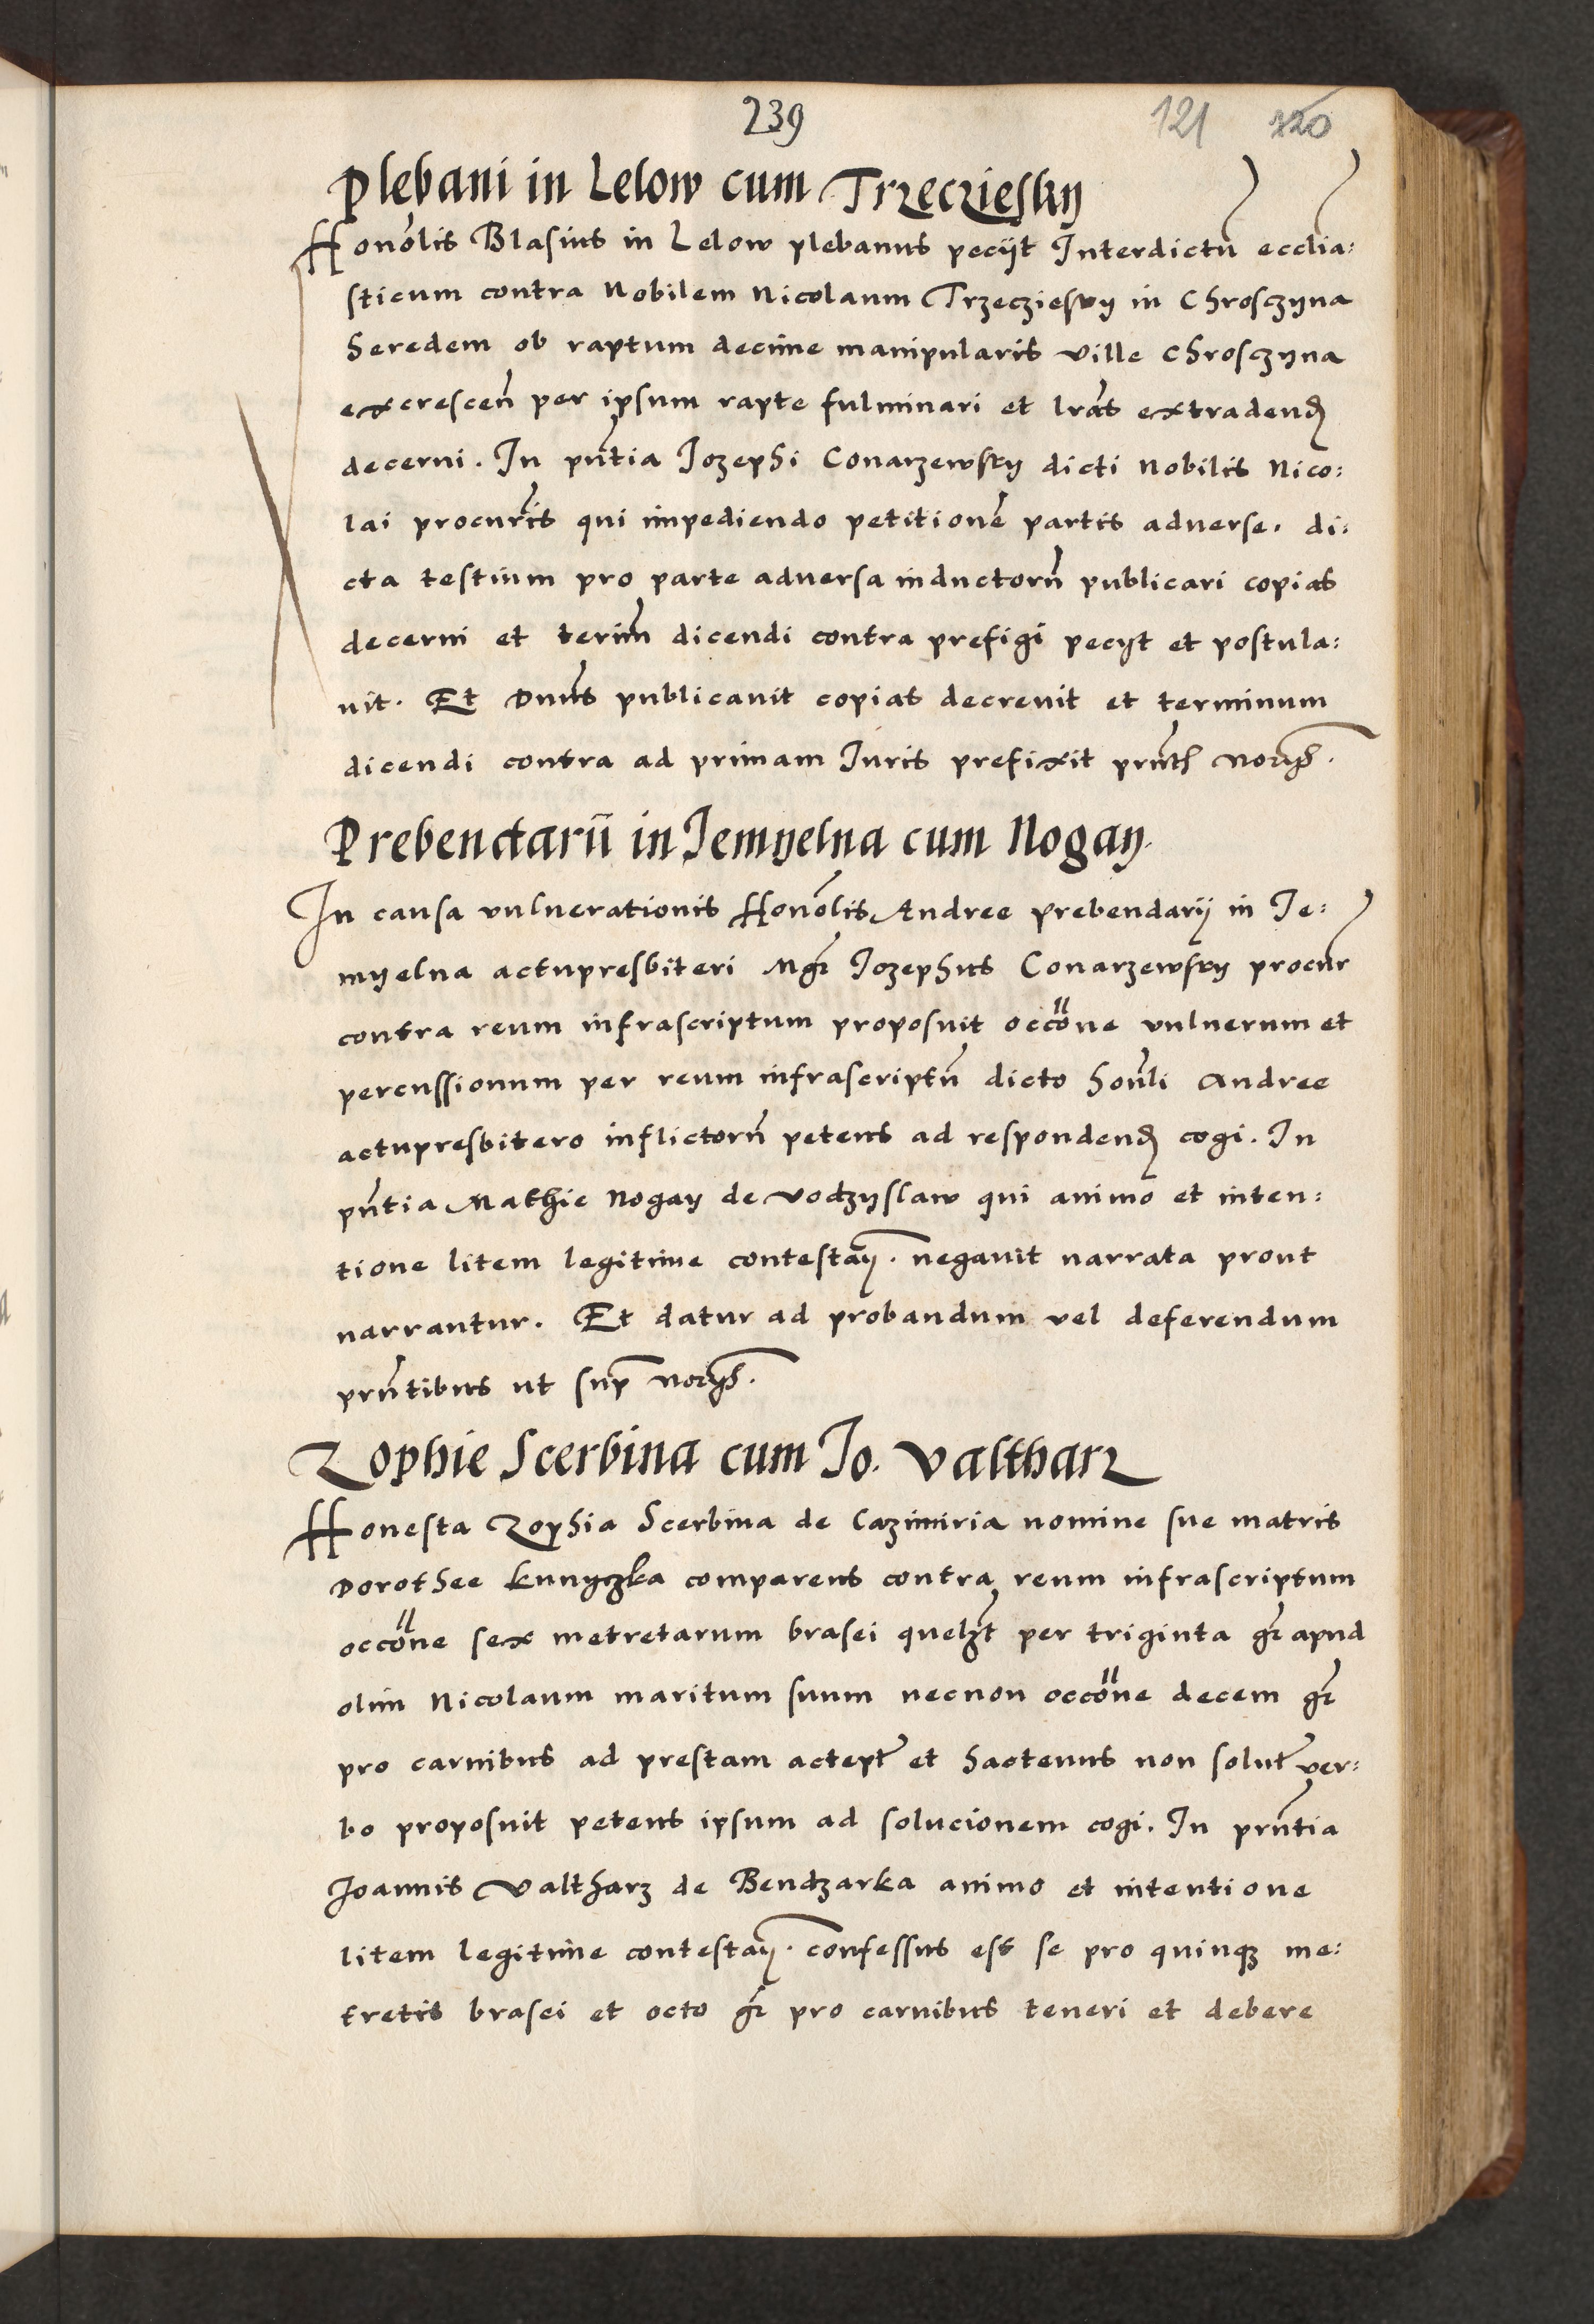 239
121 120
Plebani in Lelow cum Trzecziesky
Honólis Blasius in Lelow plebanus pecijt Interdictū ecclia:
sticum contra Nobilem Nicolaum Trzecziesky in Chrosczyna
heredem ob raptum decime manipularis ville Chrosczyna
excrescen̄ per ipsum rapte fulminari et lrās extradend
decerni. In pn̄tia Jozephi Conarzewsky dicti Nobilis Nico:
lai procurīs qui impediendo petitionē partis aduerse. di:
cta testium pro parte aduersa inductorū publicari copias
decerni et termī dicendi contra prefigi pecijt et postula:
uit. Et Dnūs publicauit copias decreuit et terminum
dicendi contra ad primam Juris prefixit prn̄t
Prebendarii in Jemyelna cum Nogay.
In causa vulnerationis Honólis Andree prebendarij in Je:
myelna actupresbiteri Mgr̄ Jozephus Conarzewsky procur
contra reum infrascriptum proposuit occōne vulnerum et
percussionum per reum infrascriptū dicto honli Andree
actupresbitero inflictorū petens ad respondend cogi. In
pn̄tia Mathie Nogay de Vodzyslaw qui animo et inten:
tione litem legitime contestan. negauit narrata prout
narrantur. Et datur ad probandum vel deferendum
prn̄tibus ut sup
Zophie Scerbina cum Jo. Valtharz
Honesta Zophia Scerbina de Cazimiria nomine sue matris
Dorothee Kunyczka comparens contra reum infrascriptum
occōne sex metretarum brasei quelzt per triginta gr̄ apud
olim Nicolaum maritum suum necnon occōne decem gr̄
pro carnibus ad prestam accept̄ et hactenus non solut̄ ver:
bo proposuit petens ipsum ad solucionem cogi. In prn̄tia
Joannis Valtharz de Bendzarka animo et intentione
litem legitime contestan. confessus est se pro quinqz me:
tretis brasei et octo gr̄ pro carnibus teneri et debere